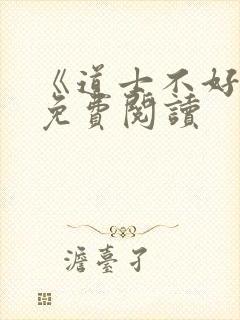 《道士不好
免費閱讀
澹臺孑